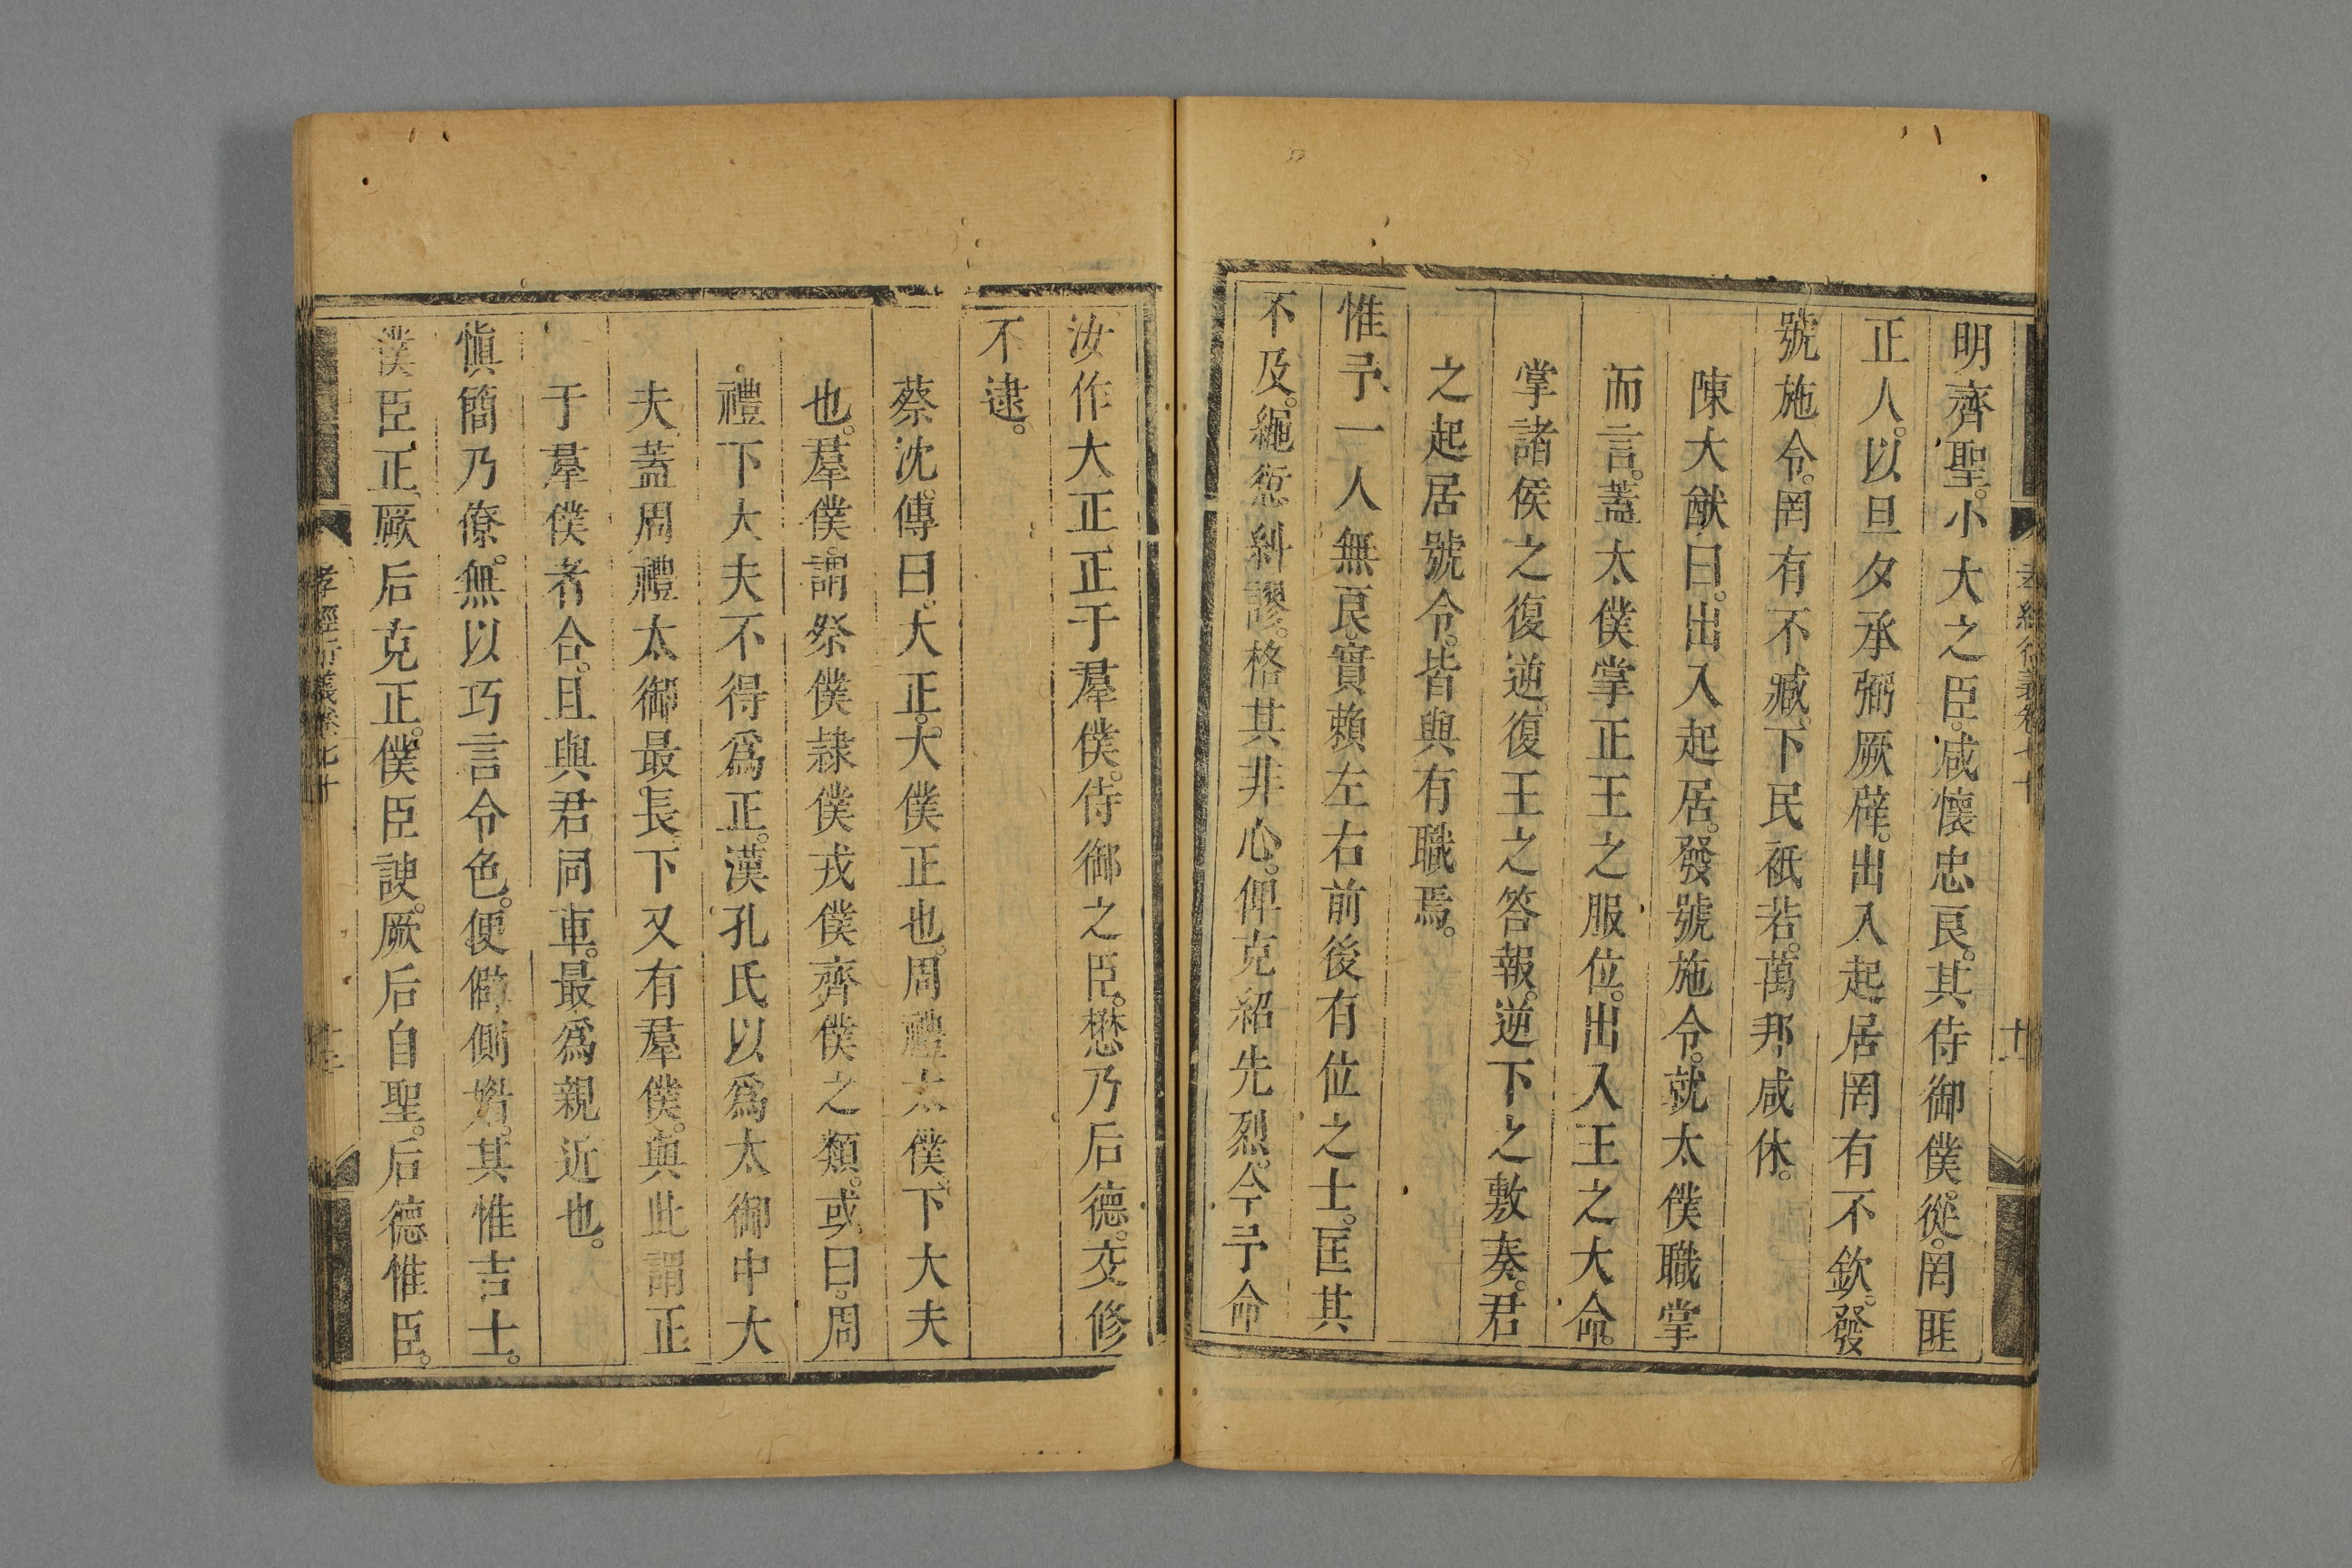 明齊聖。小大之臣。咸懷忠良。其侍御僕。從。罔匪
正人。以旦夕承弼厥辟。出入起居罔有不欽。發
號施令。罔有不臧。下民祗若。萬邦咸休。
陳大猷曰。出入起居。發號施令。就太僕職掌
而言。蓋太僕掌正王之服位。出入王之大命。
掌諸侯之復逆。復王之答報。逆下之敷奏。君
之起居號令。皆與有職焉。
惟予一人無良。實賴左右前後有位之士。匡其
不及。繩愆糾謬。格其非心。俾克紹先烈。今予命
汝作大正正于羣僕。侍御之臣。懋乃后德。交修
不逮。
蔡沈傳曰。大正。大僕正也。周禮太僕、下大夫
也。羣僕。謂祭僕隸僕戎僕齊僕之類。或曰。周
禮下大夫不得爲正。漢孔氏以爲太御中大
夫。蓋周禮太御最長、下又有羣僕。與此謂正
于羣僕者合。且與君同車。最爲親近也。
愼簡乃僚。無以巧言令色。便僻側媚。其惟吉士。
僕臣正、厥后克正。僕臣諛。厥后自聖。后德惟臣。
孝經衍義卷七十